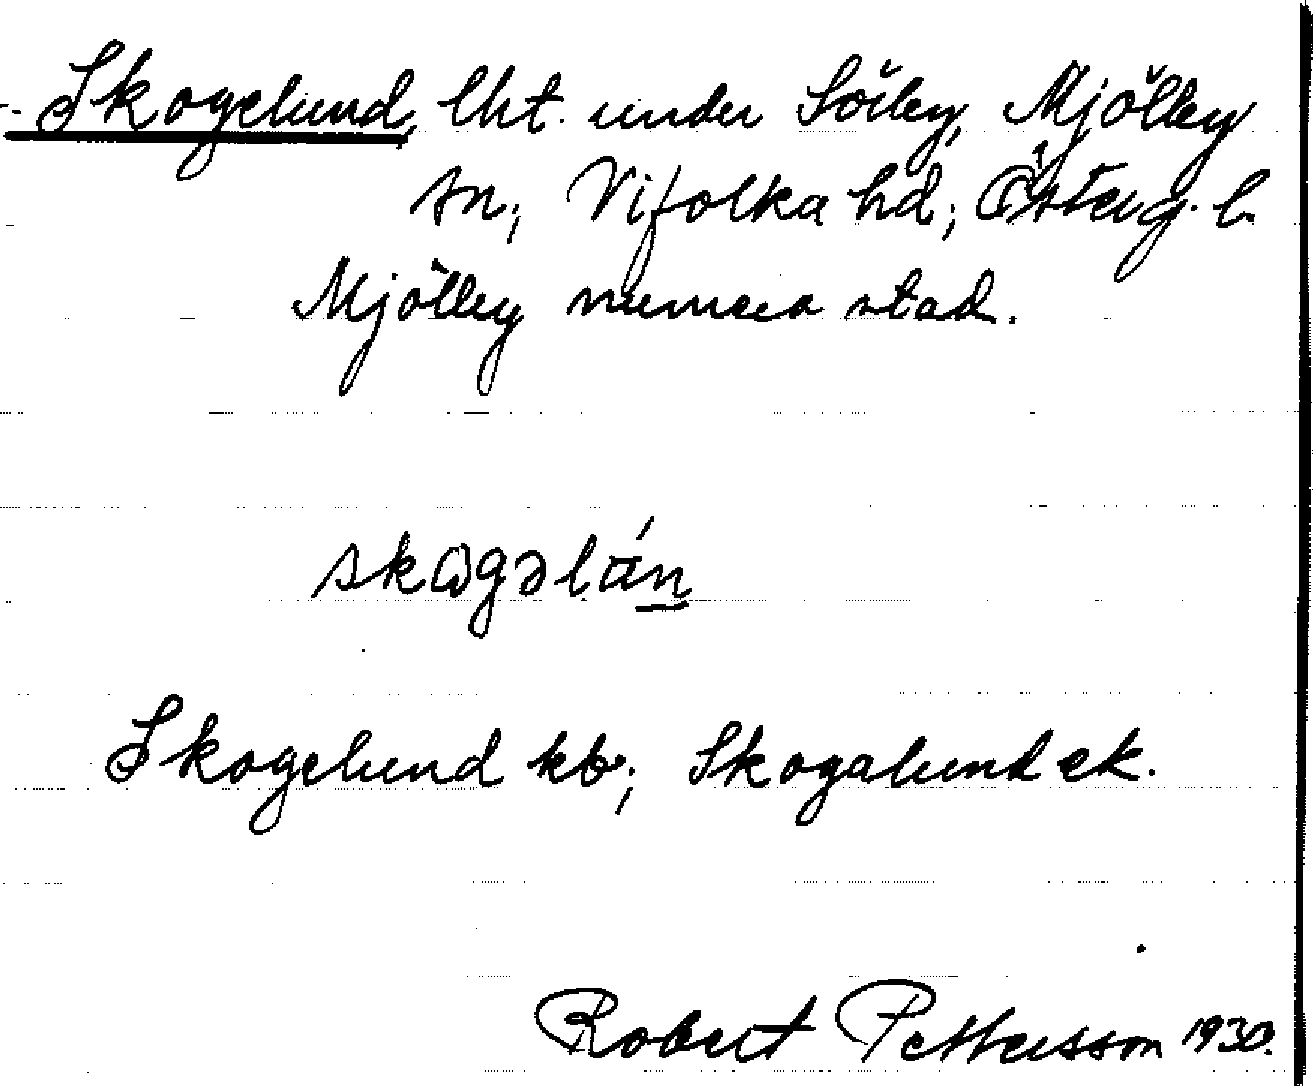 Skogelund, lht. under Sörby, Mjölby
sn, Vifolka hd, Österg. l.
Mjölby numera stad.
skogəlún
Skogelund kb; Skogalund ek.
Robert Pettersson 1930.